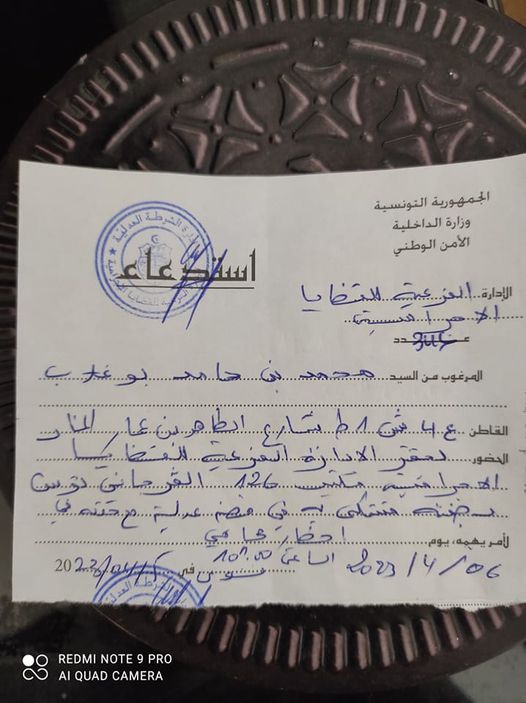 الجمهورية التونسية
وزارة الداخلية
الأمن الوطني
استدعاء
الإدارة الفرعية للقضايا
الاجرامية
عـ دد
المرغوب من السيد محمد بن حامد بوغلاب
القاطن ع 4 ش 1 ط شارع الطاهر بن عمار المنار
الحضور لمقر الإدارة الفرعية للقضايا
الاجرامية مكتب 126 القرجاني تونس
بصفته مشتكى به في قضية عدلية مع حقه في
لأمر يهمه، يوم احضار محامي
2023/4/06 الساعة 10h00
تونس في
REDMI NOTE 9 PRO
AI QUAD CAMERA